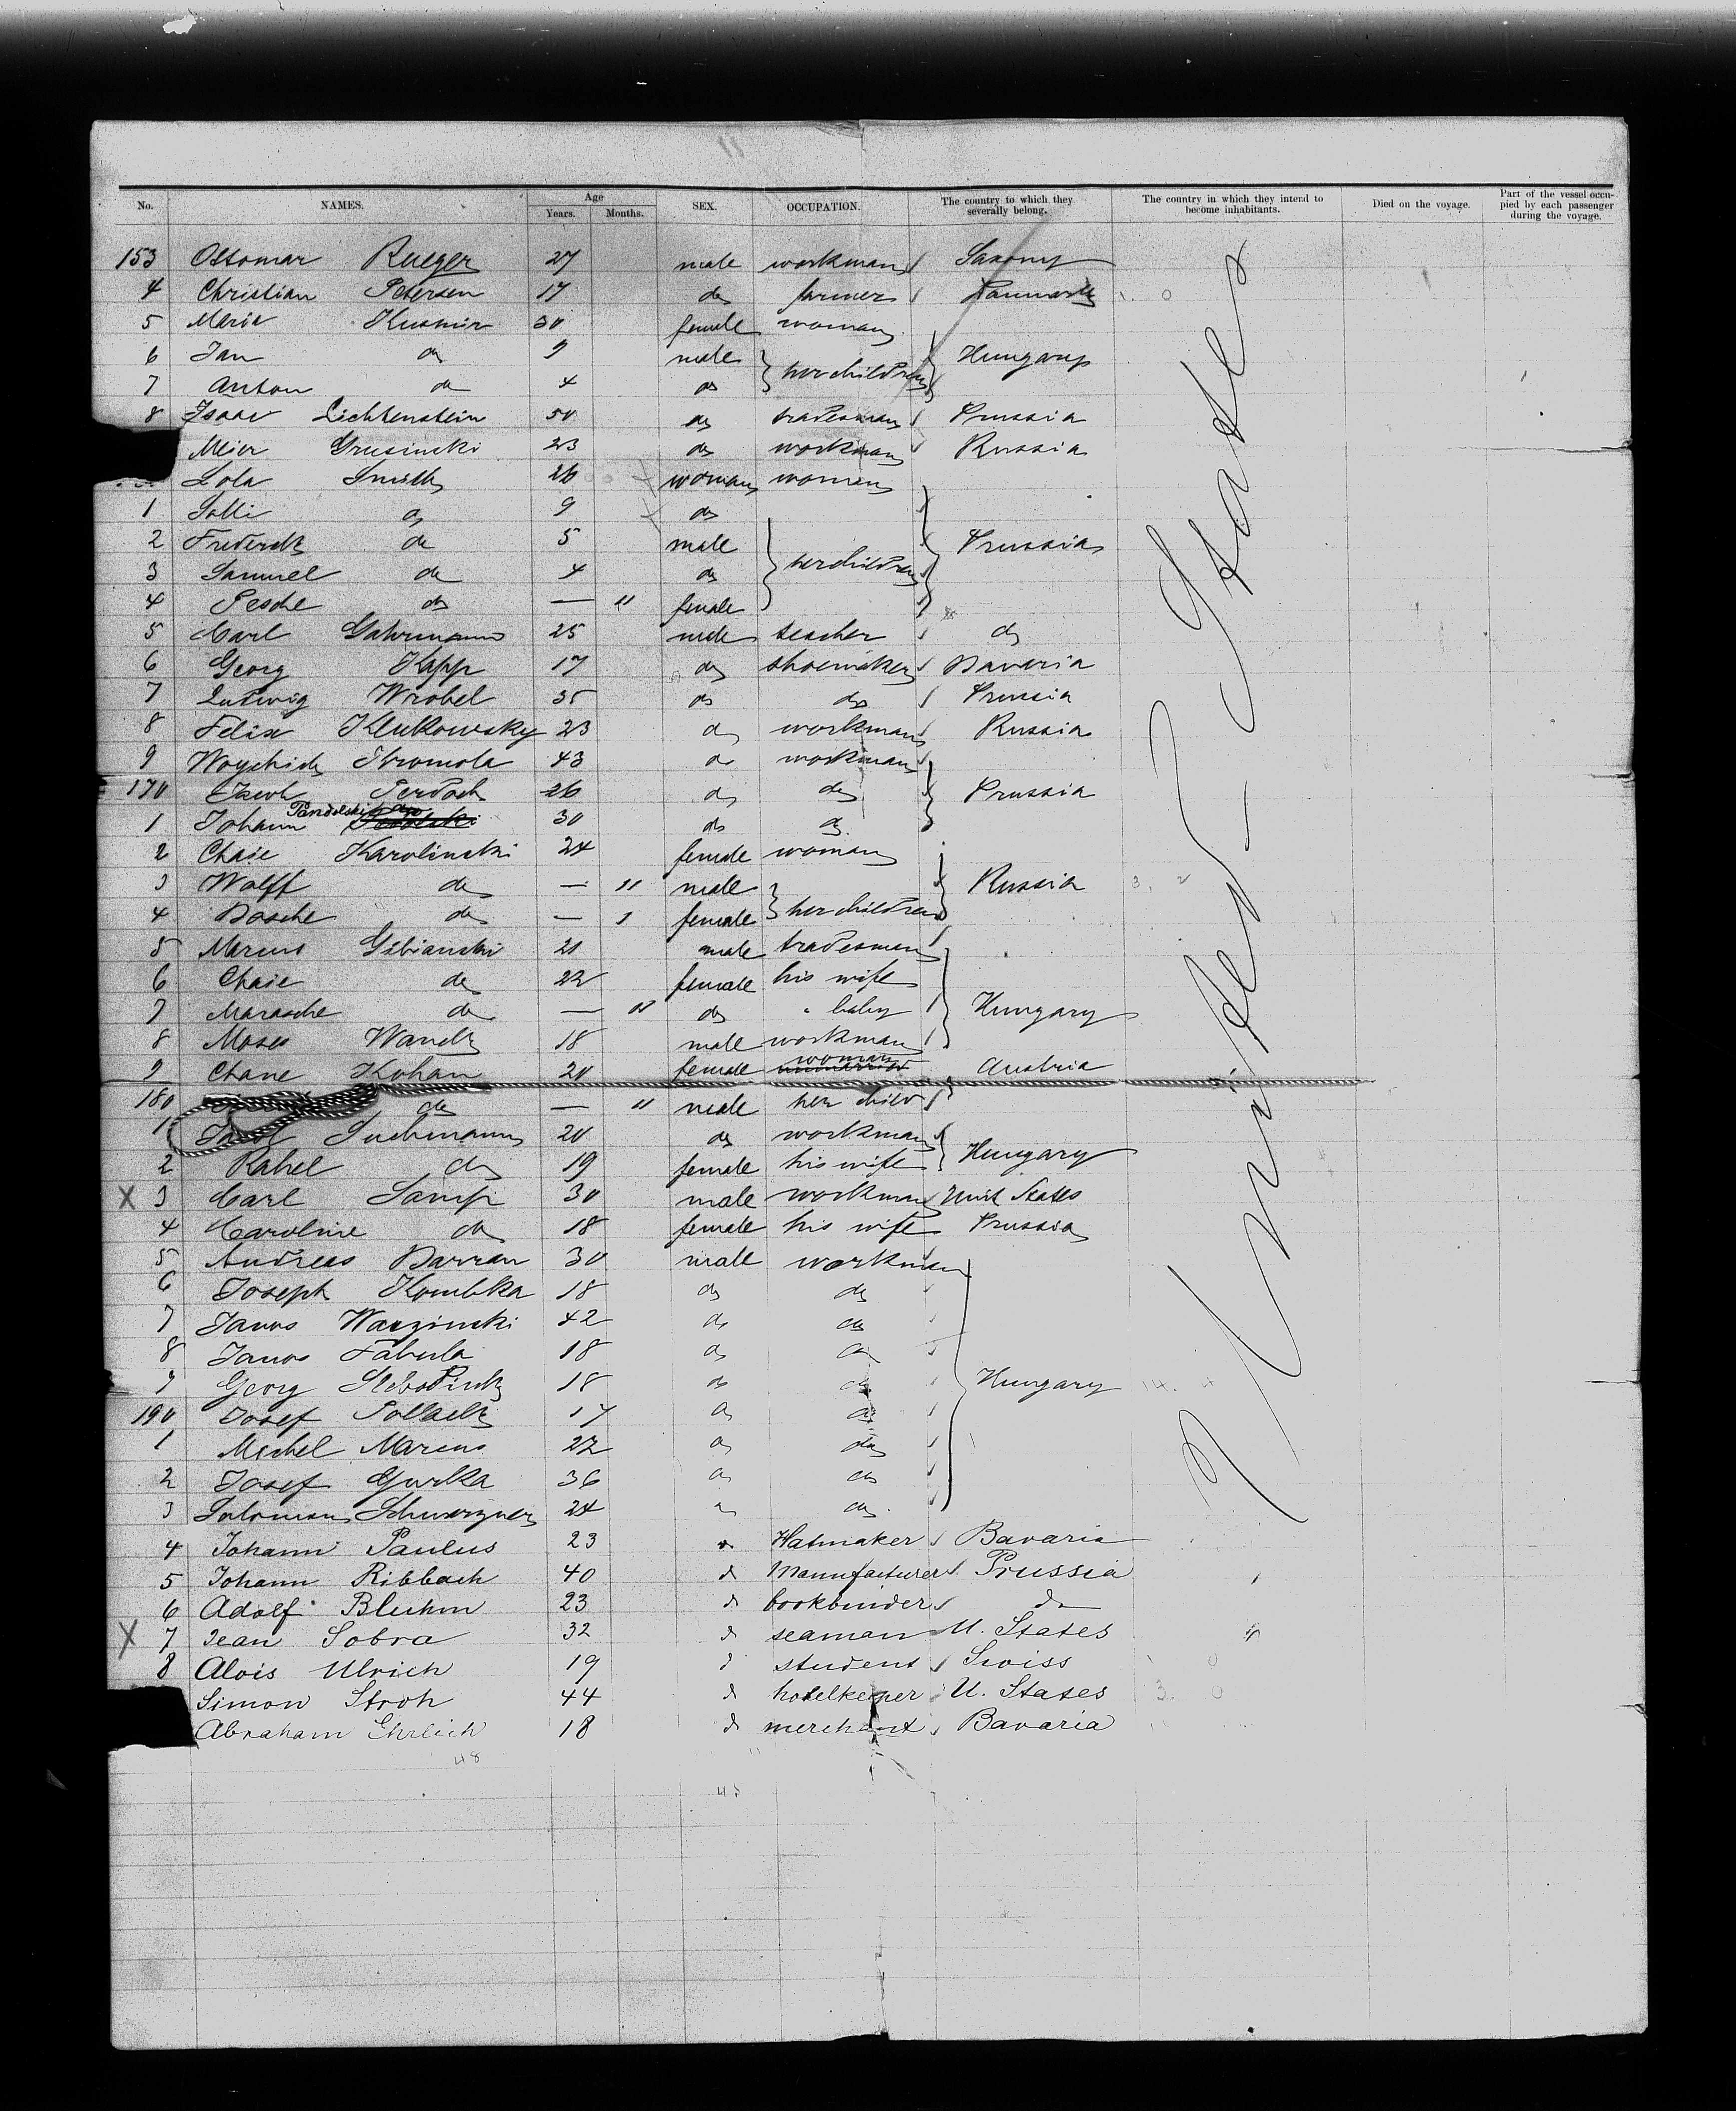 No. NAMES. Age Years. Months. SEX. OCCUPATION. The country to which they severally belong. The country in which they intend to become inhabitants. Died on the voyage. Part of the vessel occupied by each passenger during the voyage.
153 Ottomar Rueger 27 male workman Saxony
4 Christian Petersen 17 do farmer Danmark
5 Maria Kusnir 30 female woman
6 Jan do 9 male her children Hungary
7 Anton do 4 do
8 Isaac Lichtenstein 50 do tradesman Prussia
Meier Grusinski 23 do workman Russia
Lola Smith 26 woman women
1 Salli do 9 do
2 Frederik do 5 male her children Prussia
3 Samuel do 4 do
4 Pesche do — 11 female
5 Carl Gahrmann 25 male teacher do
6 Georg Kapp 17 do shoemaker Bavaria
7 Ludwig Wrobel 35 do do Prussia
8 Felix Klukowsky 23 do workman Russia
9 43 do workman
170 Jacob 26 do do Prussia
1 Johann 30 do do
2 Chaie Karolinski 24 female woman
3 Wolff do — 11 male her children Russia
4 Dosche do — 1 female
5 Marcus Gibianski 21 male tradesman
6 Chaie do 22 female his wife
7 Marasche do — 11 do " baby Hungary
8 Moses 18 male workman
9 Chane Kohan 20 female woman Austria
180 do — 11 male her child
1 Suchmann 20 do workman
2 Rahel do 19 female his wife Hungary
X 3 Carl Samp 30 male workman Unit States
4 Caroline do 18 female his wife Prussia
5 Andreas Darran 30 male workman
6 Joseph Kombka 18 do do
7 Janos Waszinski 42 do do
8 Janos Fabula 18 do do
9 Georg 18 do do Hungary
190 Josef Pollack 17 do do
1 Michel Marcus 22 do do
2 Josef Gurka 36 do do
3 Salomon 24 do do
4 Johann Paulus 23 do Hatmaker Bavaria
5 Johann Ribbach 40 d Mannfacturer Prussia
6 Adolf Bluhm 23 d bookbinder do
X 7 Jean Sobra 32 d seaman U. States
8 Alois Ulrich 19 d student Swiss
Simon Stroh 44 d hotelkeeper U. States
Abraham Ehrlich 18 d merchant Bavaria
48
United States